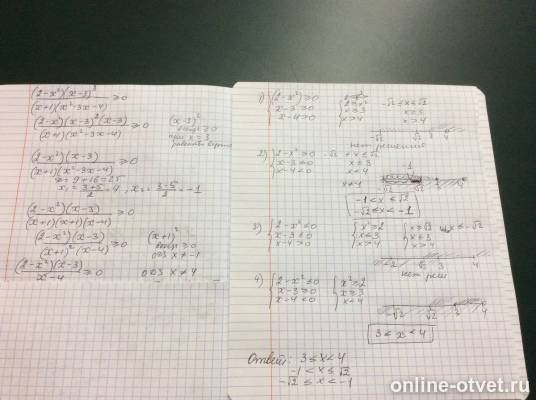 (2-x²)(x-3)³ / (x+1)(x²-3x-4) ≥ 0
(2-x²)(x-3)²(x-3) / (x+1)(x²-3x-4) ≥ 0
(x-3)²
всегда ≥ 0
при x = 3
равенство верно
(2-x²)(x-3) / (x+1)(x²-3x-4) ≥ 0
D = 9+16=25
x₁ = 3+5/2 = 4, x₂ = 3-5/2 = -1
(2-x²)(x-3) / (x+1)(x+1)(x-4) ≥ 0
(2-x²)(x-3) / (x+1)²(x-4) ≥ 0
(x+1)²
всегда ≥ 0
ОДЗ x ≠ -1
(2-x²)(x-3) / x-4 ≥ 0
ОДЗ x ≠ 4
1) {2-x² ≥ 0
x-3 ≥ 0
x-4 > 0
{2 ≥ x²
x ≥ 3
x > 4
-√2 ≤ x ≤ √2
x ≥ 3
x > 4
-√2 √2 3 4
нет решения
2) {2-x² ≥ 0
x-3 ≤ 0
x-4 < 0
-√2 ≤ x ≤ √2
x ≤ 3
x < 4
x ≠ -1
-1
-√2 √2 3 4
-1 < x ≤ √2
-√2 ≤ x < -1
3) {2-x² ≤ 0
x-3 ≤ 0
x-4 > 0
{x² ≥ 2
x ≤ 3
x > 4
{x ≥ √2 и x ≤ -√2
x ≤ 3
x > 4
-√2 √2 3 4
нет реш
4) {2-x² ≤ 0
x-3 ≥ 0
x-4 < 0
{x² ≥ 2
x ≥ 3
x < 4
-√2 √2 3 4
3 ≤ x < 4
Ответ: 3 ≤ x < 4
-1 < x ≤ √2
-√2 ≤ x < -1
online-otvet.ru